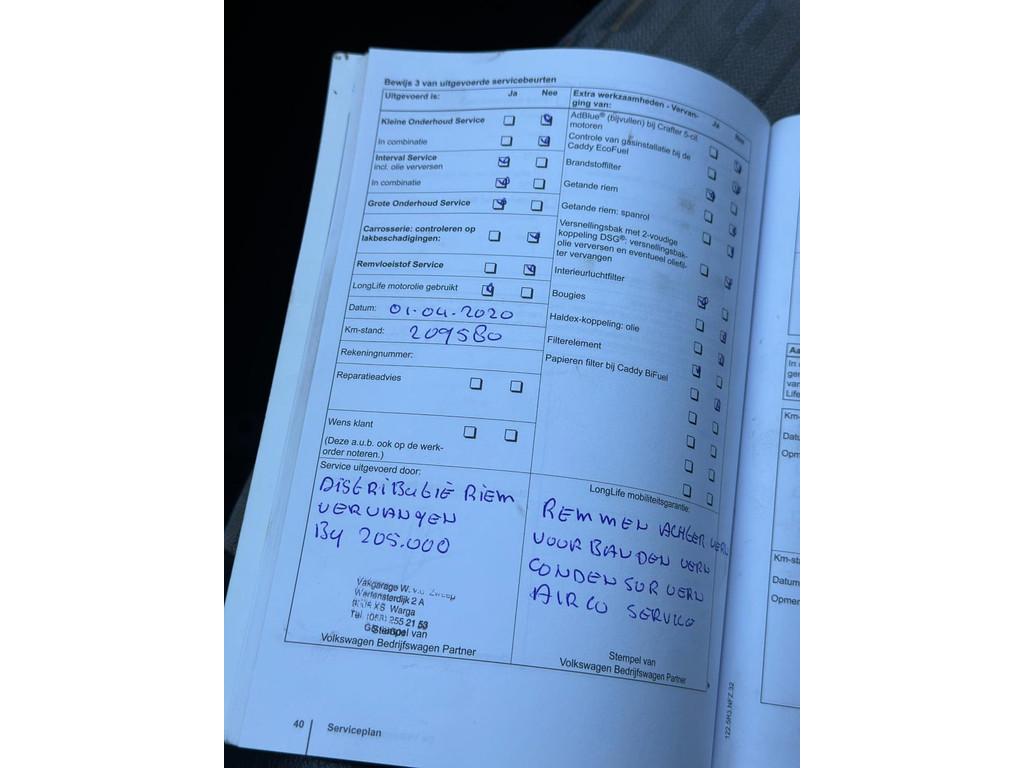 Bewijs 3 van uitgevoerde servicebeurten
Uitgevoerd is: Ja Nee
Kleine Onderhoud Service
In combinatie
Interval Service
incl. olie verversen
In combinatie
Grote Onderhoud Service
Carrosserie: controleren op
lakbeschadigingen:
Remvloeistof Service
LongLife motorolie gebruikt
Datum: 01-04-2020
Km-stand: 209580
Rekeningnummer:
Reparatieadvies
Wens klant
(Deze a.u.b. ook op de werk-
order noteren.)
Service uitgevoerd door:
DISTRIBUTIE RIEM
VERVANGEN
BY 205.000
Vakgarage W. v.d.
2 A
XS Warga
Tel. 255 21 53
Stempel van
Volkswagen Bedrijfswagen Partner
Extra werkzaamheden - Vervan-
ging van: Ja Nee
AdBlue® (bijvullen) bij Crafter 5-cil.
motoren
Controle van gasinstallatie bij de
Caddy EcoFuel
Brandstoffilter
Getande riem
Getande riem: spanrol
Versnellingsbak met 2-voudige
koppeling DSG®: versnellingsbak-
olie verversen en eventueel oliefil-
ter vervangen
Interieurluchtfilter
Bougies
Haldex-koppeling: olie
Filterelement
Papieren filter bij Caddy BiFuel
LongLife mobiliteitsgarantie:
REMMEN ACHTER VERV
VOOR BANDEN VERN
CONDENSOR VERN
AIRCO SERVICE
Stempel van
Volkswagen Bedrijfswagen Partner
40 Serviceplan
122.5R3.NFZ.32
Aa
In
ger
van
Life
Km-
Datu
Opm
Km-sta
Datum
Opmer